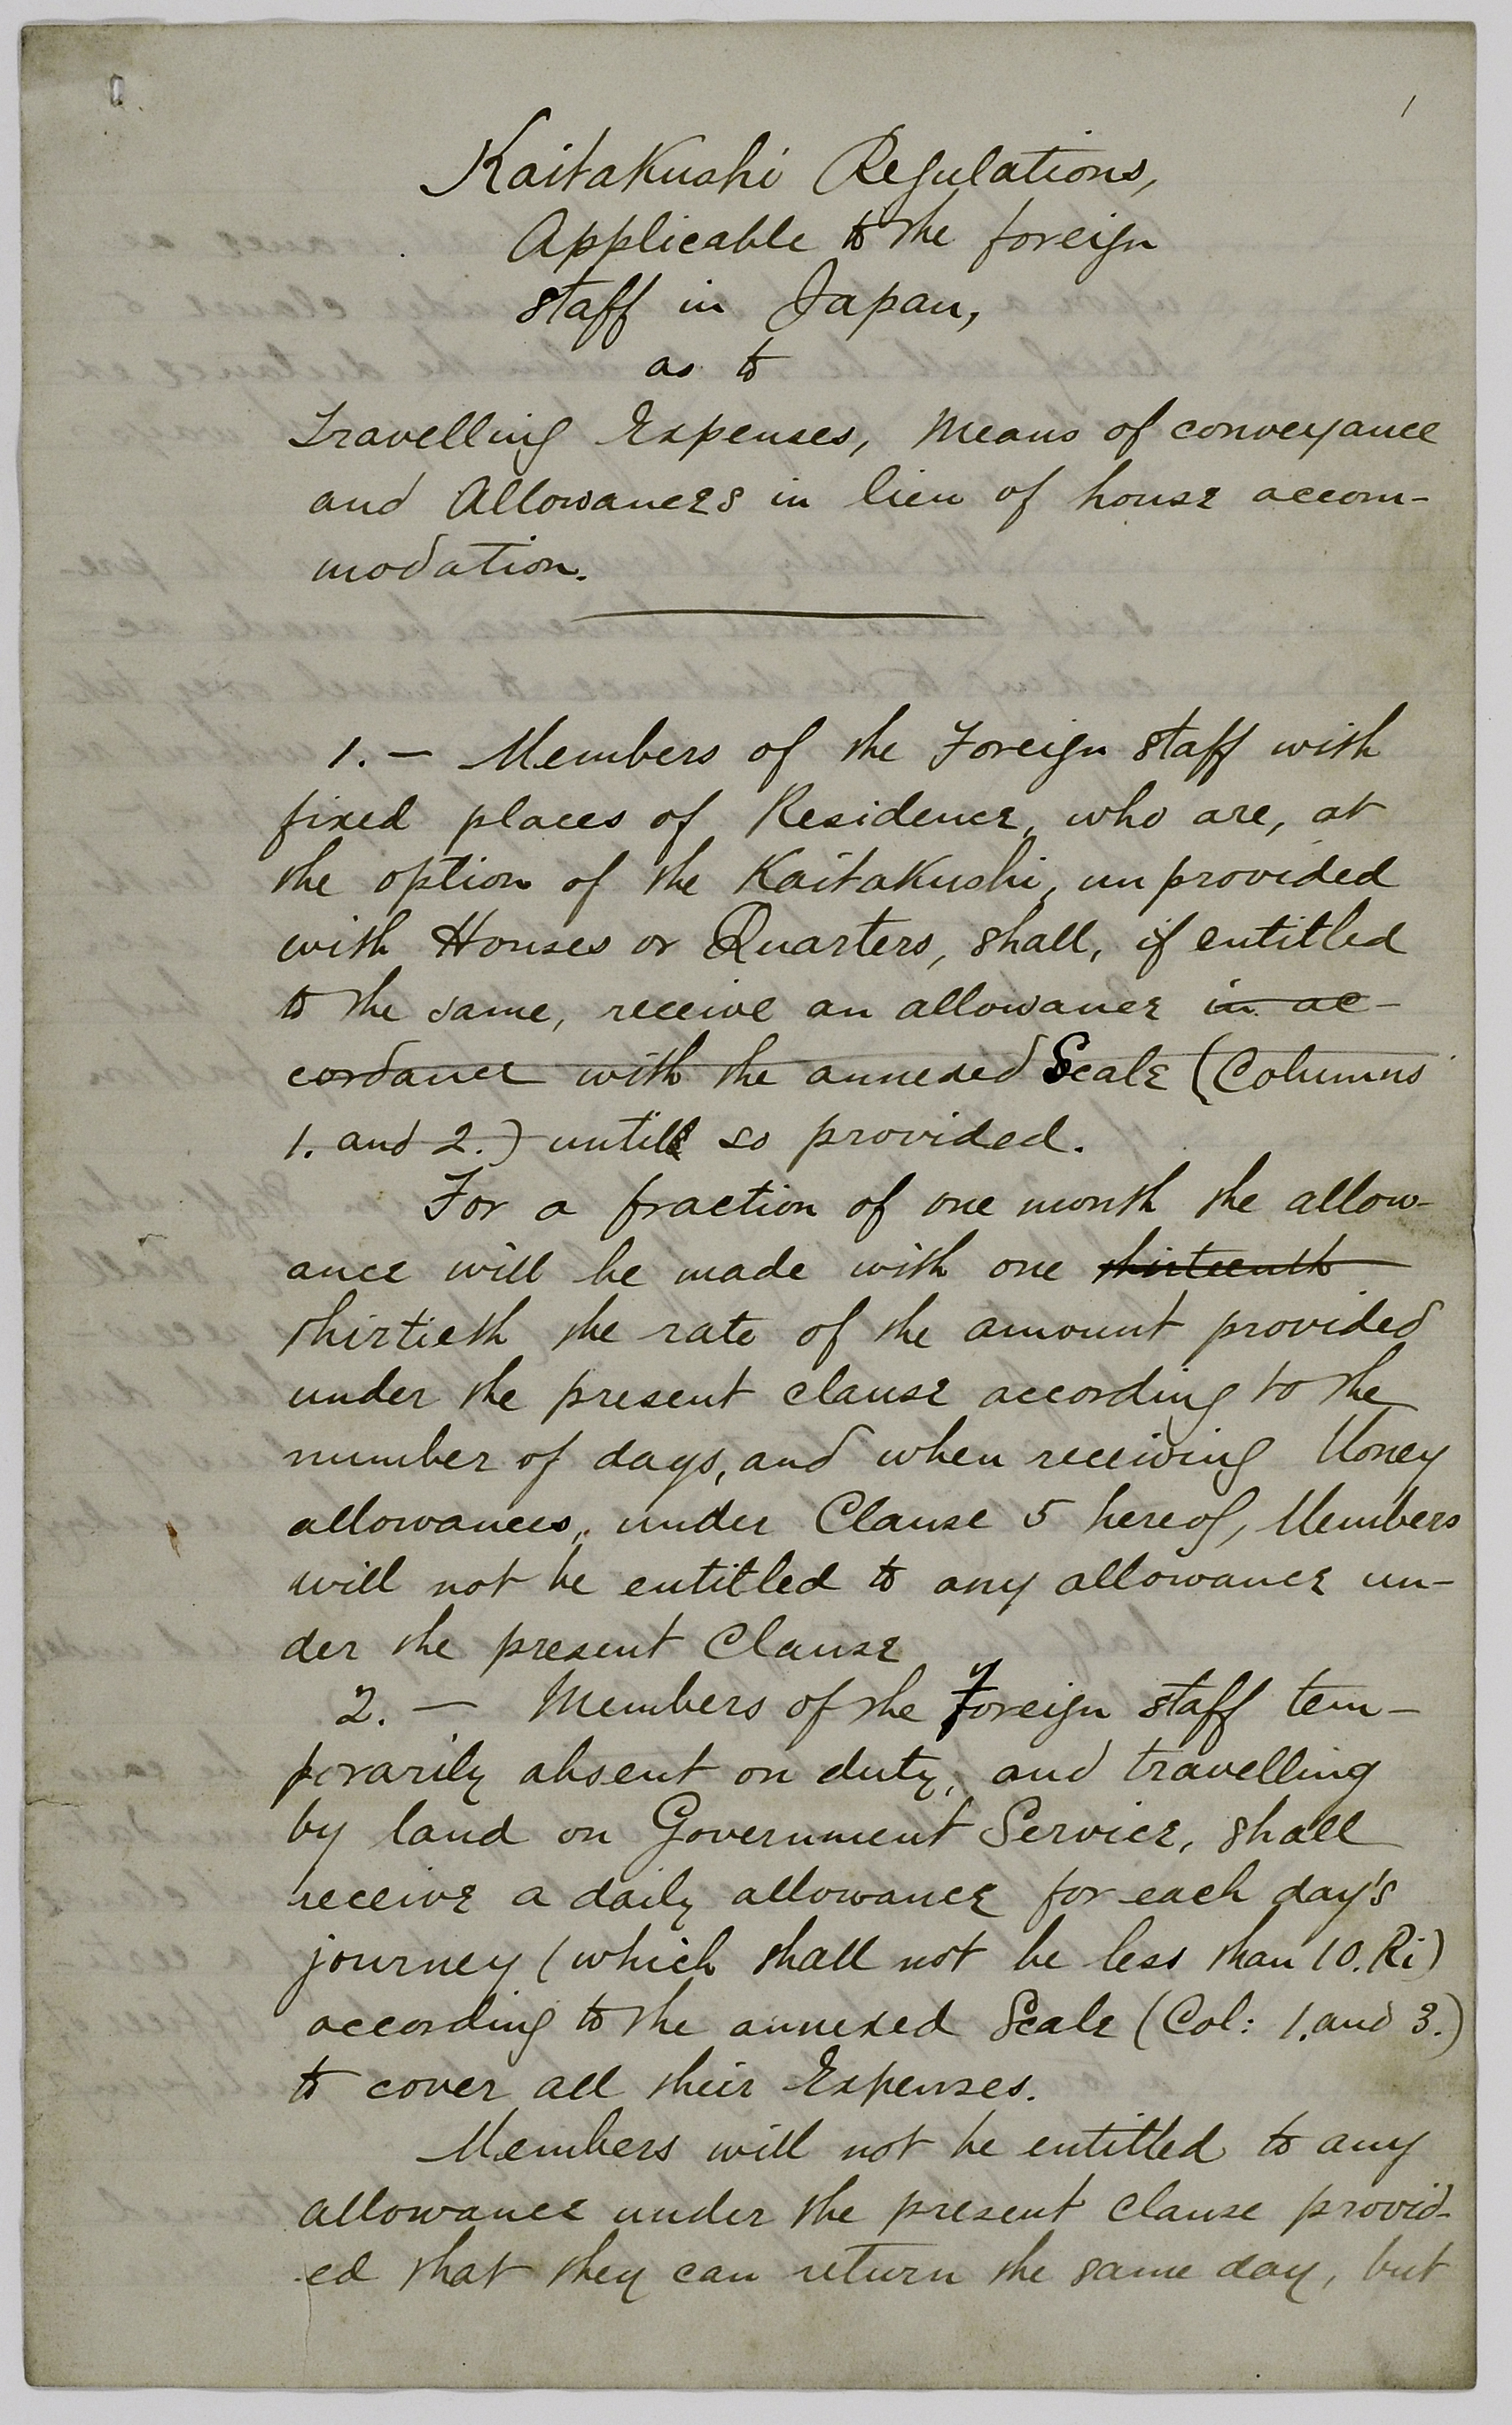 1
Kaitakushi Regulations,
Applicable to the foreign
staff in Japan,
as to
Travelling Expenses, Means of conveyance
and Allowances in lieu of house accom-
modation.
1. — Members of the Foreign staff with
fixed places of Residence, who are, at
the option of the Kaitakushi, unprovided
with Houses or Quarters, shall, if entitled
to the same, receive an allowance in ac-
cordance with the annexed Scale (Columns
1. and 2.) until so provided.
For a fraction of one month the allow-
ance will be made with one thirteenth
thirtieth the rate of the amount provided
under the present clause according to the
number of days, and when receiving Money
allowances, under Clause 5 hereof, Members
will not be entitled to any allowance un-
der the present Clause
2. — Members of the Foreign staff tem-
porarily absent on duty, and travelling
by land on Government Service, shall
receive a daily allowance for each day's
journey (which shall not be less than 10. Ri)
according to the annexed Scale (Col: 1. and 3.)
to cover all their Expenses.
Members will not be entitled to any
allowance under the present clause provid-
ed that they can return the same day, but